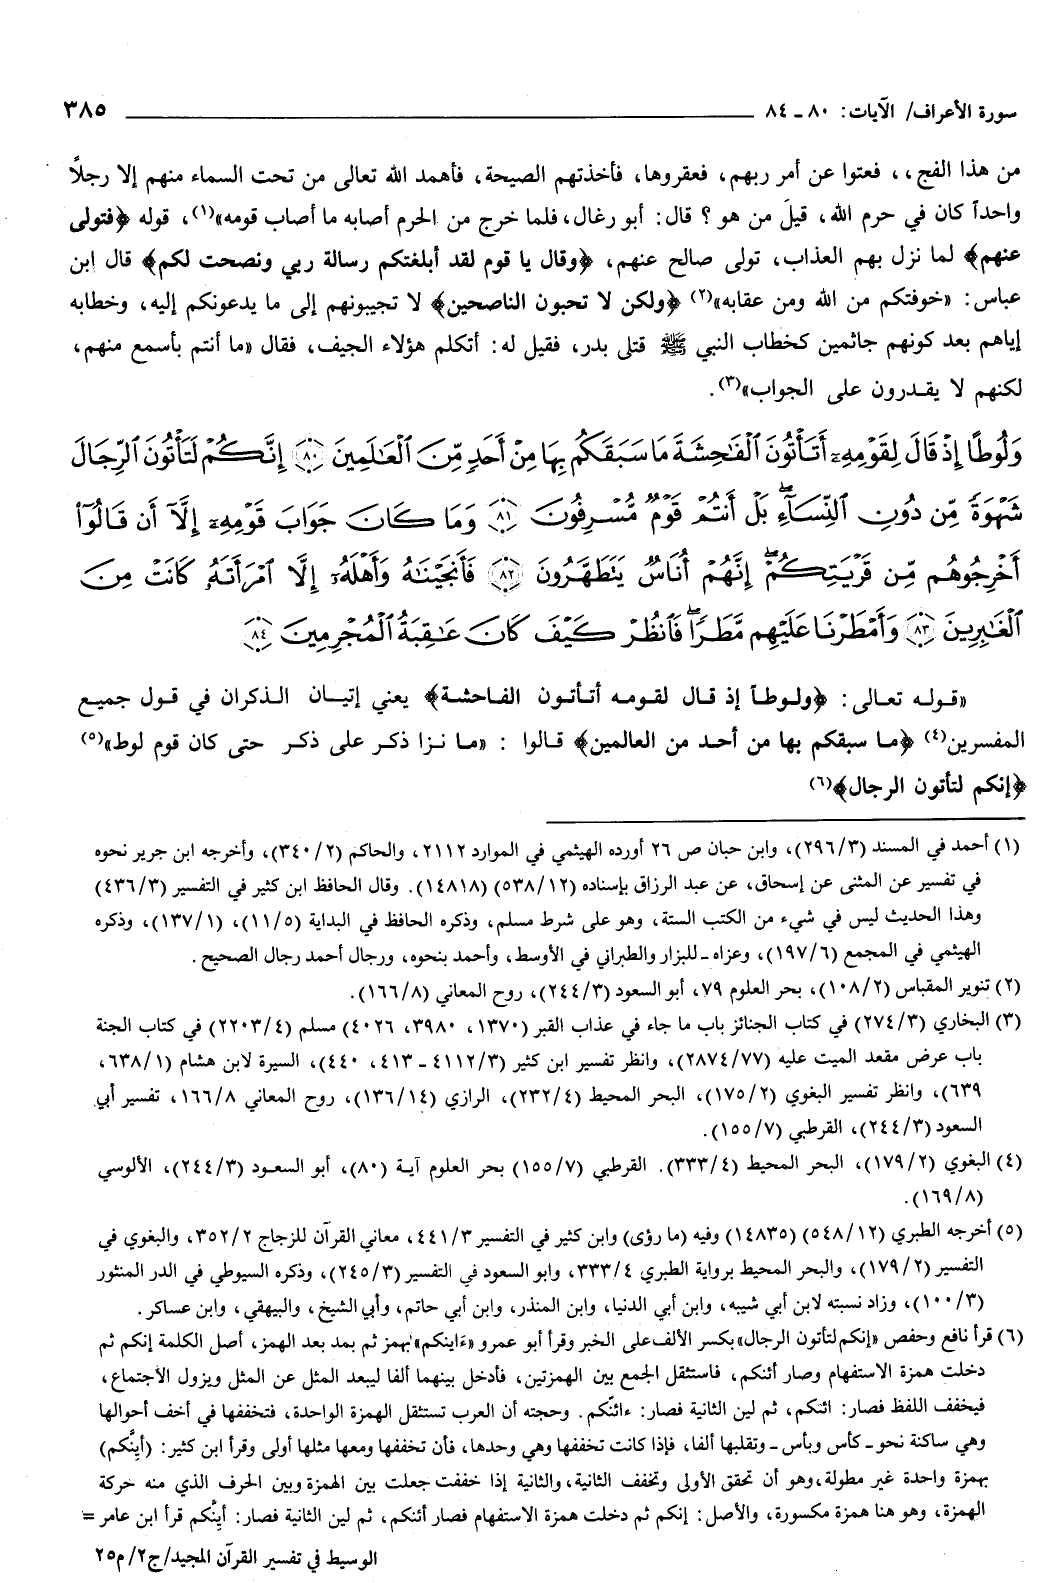 سورة الأعراف/ الآيات: ٨٠ ـ ٨٤ ٣٨٥
من هذا الفج،، فعتوا عن أمر ربهم، فعقروها، فأخذتهم الصيحة، فأهمد الله تعالى من تحت السماء منهم إلا رجلاً
واحداً كان في حرم الله، قيلَ من هو؟ قال: أبو رغال، فلما خرج من الحرم أصابه ما أصاب قومه»(١)، قوله ﴿فتولى
عنهم﴾ لما نزل بهم العذاب، تولى صالح عنهم، ﴿وقال يا قوم لقد أبلغتكم رسالة ربي ونصحت لكم﴾ قال ابن
عباس: «خوفتكم من الله ومن عقابه»(٢) ﴿ولكن لا تحبون الناصحين﴾ لا تجيبونهم إلى ما يدعونكم إليه، وخطابه
إياهم بعد كونهم جاثمين كخطاب النبي ﷺ قتلى بدر، فقيل له: أتكلم هؤلاء الجيف، فقال «ما أنتم بأسمع منهم،
لكنهم لا يقـدرون على الجواب»(٣).
وَلُوطًا إِذْ قَالَ لِقَوْمِهِۦٓ أَتَأْتُونَ ٱلْفَٰحِشَةَ مَا سَبَقَكُم بِهَا مِنْ أَحَدٍ مِّنَ ٱلْعَٰلَمِينَ ٨٠ إِنَّكُمْ لَتَأْتُونَ ٱلرِّجَالَ
شَهْوَةً مِّن دُونِ ٱلنِّسَآءِ ۚ بَلْ أَنتُمْ قَوْمٌ مُّسْرِفُونَ ٨١ وَمَا كَانَ جَوَابَ قَوْمِهِۦٓ إِلَّآ أَن قَالُوٓا۟
أَخْرِجُوهُم مِّن قَرْيَتِكُمْ ۖ إِنَّهُمْ أُنَاسٌ يَتَطَهَّرُونَ ٨٢ فَأَنجَيْنَٰهُ وَأَهْلَهُۥٓ إِلَّا ٱمْرَأَتَهُۥ كَانَتْ مِنَ
ٱلْغَٰبِرِينَ ٨٣ وَأَمْطَرْنَا عَلَيْهِم مَّطَرًا ۖ فَٱنظُرْ كَيْفَ كَانَ عَٰقِبَةُ ٱلْمُجْرِمِينَ ٨٤
«قـولـه تعـالى: ﴿ولـوطـاً إذ قـال لقـومـه أتـأتـون الفـاحشـة﴾ يعني إتيـان الـذكران في قـول جميـع
المفسرين(٤) ﴿مـا سبقكم بها من أحـد من العالمين﴾ قـالوا : «مـا نـزا ذكـر على ذكـر حتى كان قوم لوط»(٥)
﴿إنكم لتأتون الرجال﴾(٦)
(١) أحمد في المسند (٢٩٦/٣)، وابن حبان ص ٢٦ أورده الهيثمي في الموارد ٢١١٢، والحاكم (٣٤٠/٢)، وأخرجه ابن جرير نحوه
في تفسير عن المثنى عن إسحاق، عن عبد الرزاق بإسناده (٥٣٨/١٢) (١٤٨١٨). وقال الحافظ ابن كثير في التفسير (٤٣٦/٣)
وهذا الحديث ليس في شيء من الكتب الستة، وهو على شرط مسلم، وذكره الحافظ في البداية (١١/٥)، (١٣٧/١)، وذكره
الهيثمي في المجمع (١٩٧/٦)، وعزاه ـ للبزار والطبراني في الأوسط، وأحمد بنحوه، ورجال أحمد رجال الصحيح.
(٢) تنوير المقباس (١٠٨/٢)، بحر العلوم ٧٩، أبو السعود (٢٤٤/٣)، روح المعاني (١٦٦/٨).
(٣) البخاري (٢٧٤/٣) في كتاب الجنائز باب ما جاء في عذاب القبر (١٣٧٠، ٣٩٨٠، ٤٠٢٦) مسلم (٢٢٠٣/٤) في كتاب الجنة
باب عرض مقعد الميت عليه (٢٨٧٤/٧٧)، وانظر تفسير ابن كثير (٤١١٢/٣ ـ ٤١٣، ٤٤٠)، السيرة لابن هشام (٦٣٨/١،
٦٣٩)، وانظر تفسير البغوي (١٧٥/٢)، البحر المحيط (٢٣٢/٤)، الرازي (١٣٦/١٤)، روح المعاني ١٦٦/٨، تفسير أبي
السعود (٢٤٤/٣)، القرطبي (١٥٥/٧).
(٤) البغوي (١٧٩/٢)، البحر المحيط (٣٣٣/٤). القرطبي (١٥٥/٧) بحر العلوم آيـة (٨٠)، أبو السعـود (٢٤٤/٣)، الألوسي
(١٦٩/٨).
(٥) أخرجه الطبري (٥٤٨/١٢) (١٤٨٣٥) وفيه (ما رؤى) وابن كثير في التفسير ٤٤١/٣، معاني القرآن للزجاج ٣٥٢/٢، والبغوي في
التفسير (١٧٩/٢)، والبحر المحيط برواية الطبري ٣٣٣/٤، وابو السعود في التفسير (٢٤٥/٣)، وذكره السيوطي في الدر المنثور
(١٠٠/٣)، وزاد نسبته لابن أبي شيبه، وابن أبي الدنيا، وابن المنذر، وابن أبي حاتم، وأبي الشيخ، والبيهقي، وابن عساكر.
(٦) قرأ نافع وحفص «إنكم لتأتون الرجال» بكسر الألف على الخبر وقرأ أبو عمرو «ءَاينكم» بهمز ثم بمد بعد الهمز، أصل الكلمة إنكم ثم
دخلت همزة الاستفهام وصار أئنكم، فاستثقل الجمع بين الهمزتين، فأدخل بينهما ألفا ليبعد المثل عن المثل ويزول الأجتماع،
فيخفف اللفظ فصار: ائنكم، ثم لين الثانية فصار: ءائنّكم. وحجته أن العرب تستثقل الهمزة الواحدة، فتخففها في أخف أحوالها
وهي ساكنة نحو ـ كأس وبأس ـ وتقلبها ألفا، فإذا كانت تخففها وهي وحدها، فأن تخففها ومعها مثلها أولى وقرأ ابن كثير: (أيِنَّكم)
بهمزة واحدة غير مطولة، وهو أن تحقق الأولى وتخفف الثانية، والثانية إذا خففت جعلت بين الهمزة وبين الحرف الذي منه حركة
الهمزة، وهو هنا همزة مكسورة، والأصل: إنكم ثم دخلت همزة الاستفهام فصار أئنكم، ثم لين الثانية فصار: أيِنَّكم قرأ ابن عامر =
الوسيط في تفسير القرآن المجيد/ج٢/م٢٥